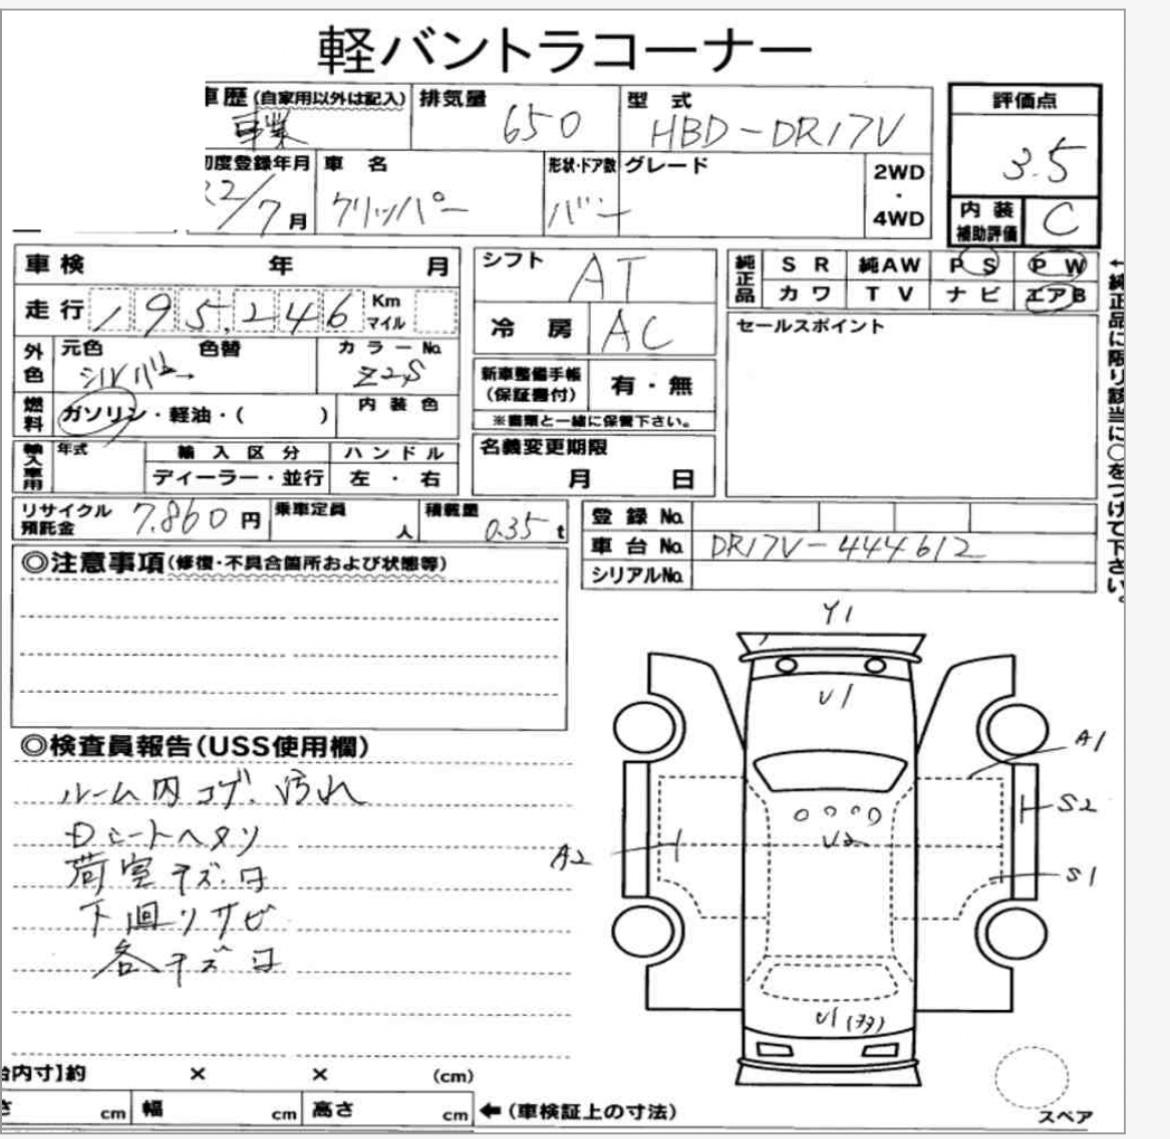 軽バントラコーナー
車歴(自家用以外は記入) 排気量 型式 評価点
事業 650 HBD-DR17V 3.5
初度登録年月 車名 形状・ドア数 グレード 2WD・4WD
22/7月 クリッパー バン
内装補助評価 C
車検 年 月
走行 195,246 Km マイル
外色 元色 色替 カラーNo.
シルバー Z2S
燃料 ガソリン・軽油・( ) 内装色
輸入車用 年式 輸入区分 ハンドル
ディーラー・並行 左・右
シフト AT
冷房 AC
新車整備手帳(保証書付) 有・無
※書類と一緒に保管下さい。
名義変更期限
月 日
純正品 SR 純AW PS PW
カワ TV ナビ エアB
セールスポイント
←純正品に限り該当に○をつけて下さい。
リサイクル預託金 7,860円 乗車定員 人 積載量 0.35t
登録No.
車台No. DR17V-444612
シリアルNo.
◎注意事項(修復・不具合箇所および状態等)
◎検査員報告(USS使用欄)
ルーム内コゲ、汚れ
Dシートヘタリ
荷室キズ・凹
下廻りサビ
各キズ凹
Y1
U1
A1
S2
U2
A2
S1
U1
台内寸】約 × × (cm)
さ cm 幅 cm 高さ cm ←(車検証上の寸法)
スペア